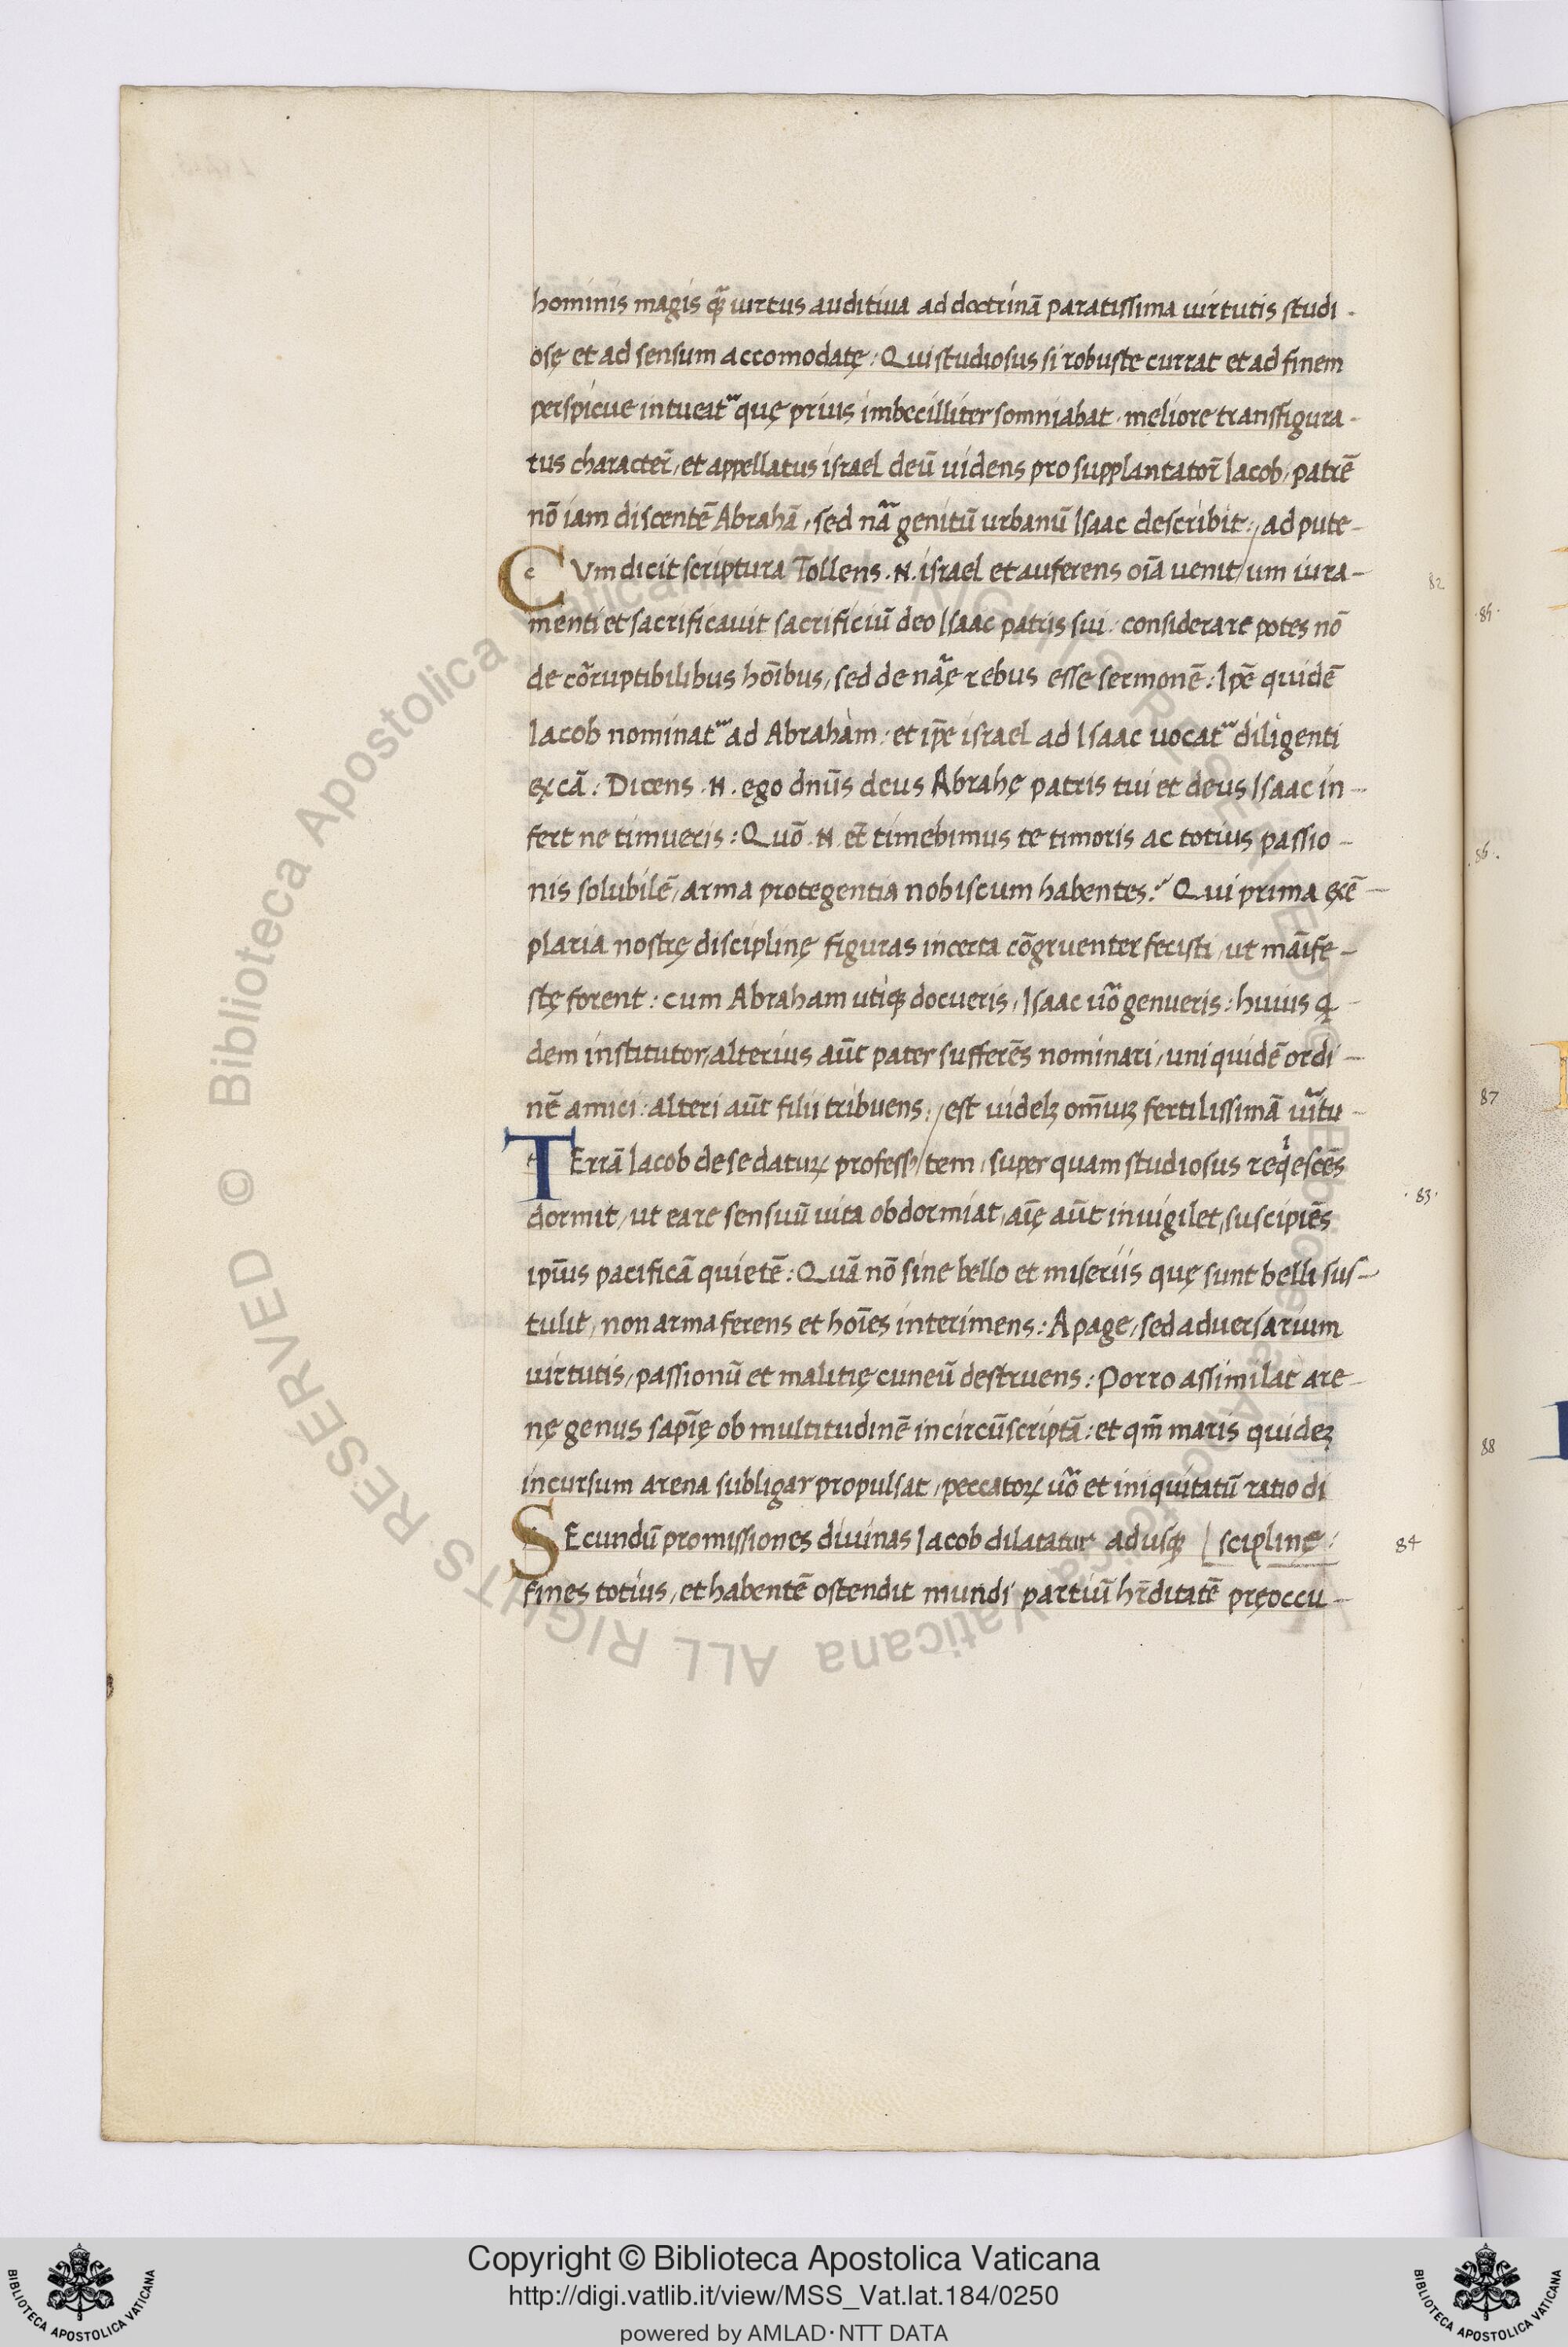 hominis magis q̃ uirtus auditiua ad doctrinã paratissima uirtutis studi -
osę et ad sensum accomodatę : Qui studiosus si robuste currat et ad finem
perspicue intueat᷑ quę prius imbecilliter somniabat · meliore transfigura -
tus character̃, et appellatus israel deũ uidens pro supplantator̃ Iacob, patrẽ
nõ iam discentẽ Abrahã, sed nã̃ genitũ urbanũ Isaac describit : / ad pute -
CVm dicit scriptura Tollens .N. israel et auferens oĩa uenit / um iura -
menti et sacrificauit sacrificiũ deo Isaac patris sui : considerare potes nõ
de cõruptibilibus hoĩbus, sed de nãę rebus esse sermonẽ : Ip̃e quidẽ
Iacob nominat᷑ ad Abraham : et ip̃e israel ad Isaac uocat᷑ diligenti
ex cã : Dicens .N. ego dnũs deus Abrahę patris tui et deus Isaac in -
fert ne timueris : Quõ .N. et̃ timebimus te timoris ac totius passio -
nis solubilẽ, arma protegentia nobiscum habentes ? Qui prima exẽ -
plaria nostrę disciplinę figuras incerta cõgruenter fecisti, ut mãife -
stę forent : cum Abraham utiq; docueris, Isaac uõ genueris : huius q -
dem institutor, alterius aũt pater sufferẽs nominari, uni quidẽ ordi -
nẽ amici : alteri aũt filii tribuens : / est uidelꝫ om̃iuꝫ fertilissimã uĩtu -
TErrã Iacob de se daturꝝ profess9 / tem, super quam studiosus reqiescẽs
dormit, ut eare sensuũ uita obdormiat, aĩę aũt inuigilet, suscipiẽs
ipĩus pacificã quietẽ : Quã nõ sine bello et miseriis quę sunt belli sus -
tulit, non arma ferens et hoĩes interimens : Apage, sed aduersarium
uirtutis, passionũ et malitię cuneũ destruens : Porro assimilat are -
nę genus sapĩę ob multitudinẽ incircũscriptã : et qm̃ maris quideꝫ
incursum arena subligar propulsat, peccatorꝝ uõ et iniquitatũ ratio di
SEcundũ promissiones diuinas Iacob dilatatur adusq; [ sciplinę :
fines totius, et habentẽ ostendit mundi partiũ hr̃ditatẽ pręoccu -
82
· 83 ·
84
· 85 ·
· 86 ·
87
88
Copyright © Biblioteca Apostolica Vaticana
http://digi.vatlib.it/view/MSS_Vat.lat.184/0250
powered by AMLAD·NTT DATA
BIBLIOTECA APOSTOLICA VATICANA
BIBLIOTECA APOSTOLICA VATICANA
© Biblioteca Apostolica Vaticana ALL RIGHTS RESERVED © Biblioteca Apostolica Vaticana ALL RIGHTS RESERVED